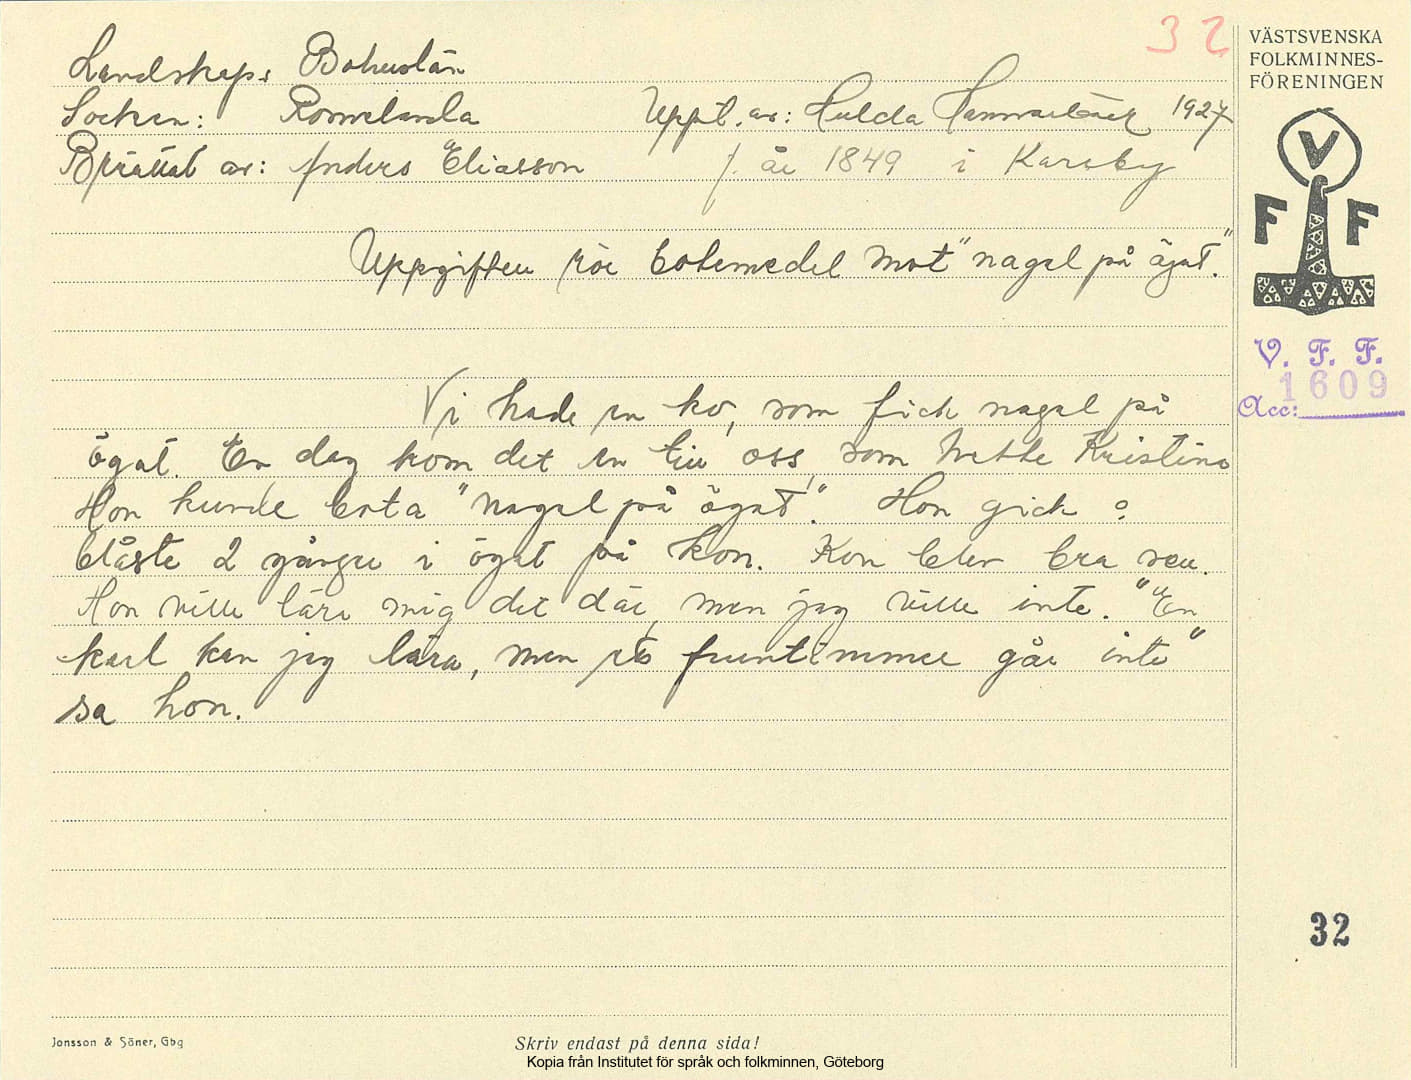 32
Landskap: Bohuslän
Socken: Romelanda Uppt. av: Hulda Hammarbäck 1927
Berättat av: Anders Eliasson f. år 1849 i Kareby
Uppgiften rör botemedel mot "nagel på ögat."
Vi hade en ko, som fick nagel på
ögat. En dag kom det en till oss, som hette Kristina
Hon kunde bota "nagel på ögat". Hon gick o
blåste 2 gånger i ögat på kon. Kon blev bra sen.
Hon ville lära mig det där, men jag ville inte. "En
karl kan jag lära, men ett fruntimmer går inte"
sa hon.
VÄSTSVENSKA
FOLKMINNES-
FÖRENINGEN
V
F F
V. F. F.
Acc: 1609
32
Jonsson & Söner, Gbg
Skriv endast på denna sida!
Kopia från Institutet för språk och folkminnen, Göteborg